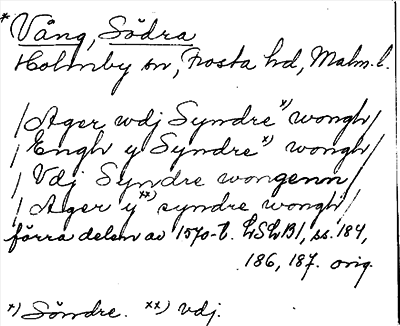 * Vång, Södra
Holmby sn, Frosta hd, Malm. l.
/Ager wdj Syndre *) wongh/
/Engh y Syndre *) wongh/
/Vdj Syndre wongenn/
/Ager y **) syndre wongh/
förra delen av 1570-t. LSLB1, ss. 184,
186, 187. orig.
*) Söndre. **) vdj.